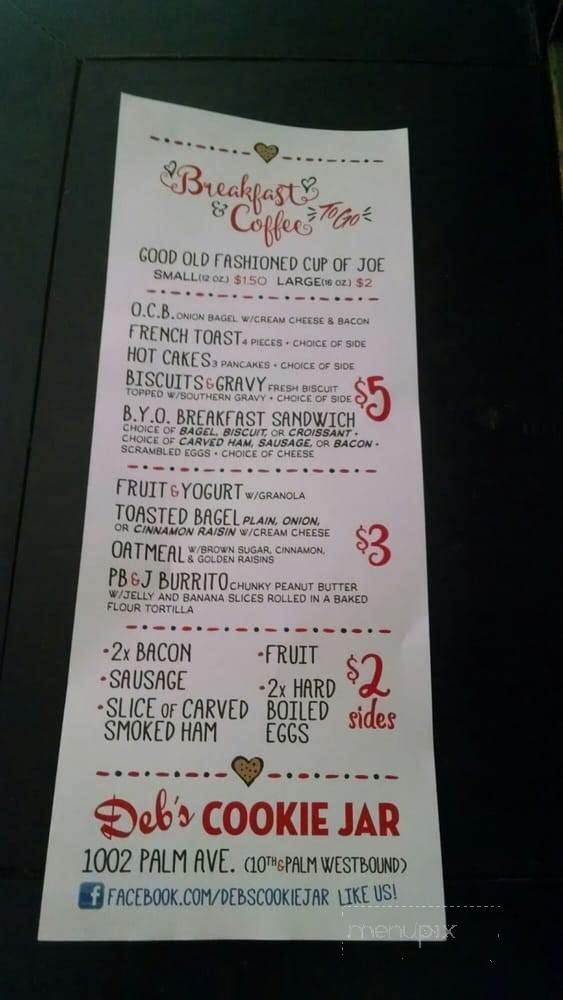 Breakfast
& Coffee TO GO
GOOD OLD FASHIONED CUP OF JOE
SMALL (12 OZ.) $1.50 LARGE (16 OZ.) $2
O.C.B. ONION BAGEL W/CREAM CHEESE & BACON
FRENCH TOAST 4 PIECES + CHOICE OF SIDE
HOT CAKES 3 PANCAKES + CHOICE OF SIDE
BISCUITS & GRAVY FRESH BISCUIT
TOPPED W/SOUTHERN GRAVY + CHOICE OF SIDE
$5
B.Y.O. BREAKFAST SANDWICH
CHOICE OF BAGEL, BISCUIT, OR CROISSANT +
CHOICE OF CARVED HAM, SAUSAGE, OR BACON +
SCRAMBLED EGGS + CHOICE OF CHEESE
FRUIT & YOGURT W/GRANOLA
TOASTED BAGEL PLAIN, ONION,
OR CINNAMON RAISIN W/CREAM CHEESE
$3
OATMEAL W/BROWN SUGAR, CINNAMON,
& GOLDEN RAISINS
PB & J BURRITO CHUNKY PEANUT BUTTER
W/JELLY AND BANANA SLICES ROLLED IN A BAKED
FLOUR TORTILLA
•2x BACON
•SAUSAGE
•SLICE OF CARVED
SMOKED HAM
•FRUIT
•2x HARD
BOILED
EGGS
$2
sides
Deb's COOKIE JAR
1002 PALM AVE. (10TH & PALM WESTBOUND)
f FACEBOOK.COM/DEBSCOOKIEJAR LIKE US!
menupix